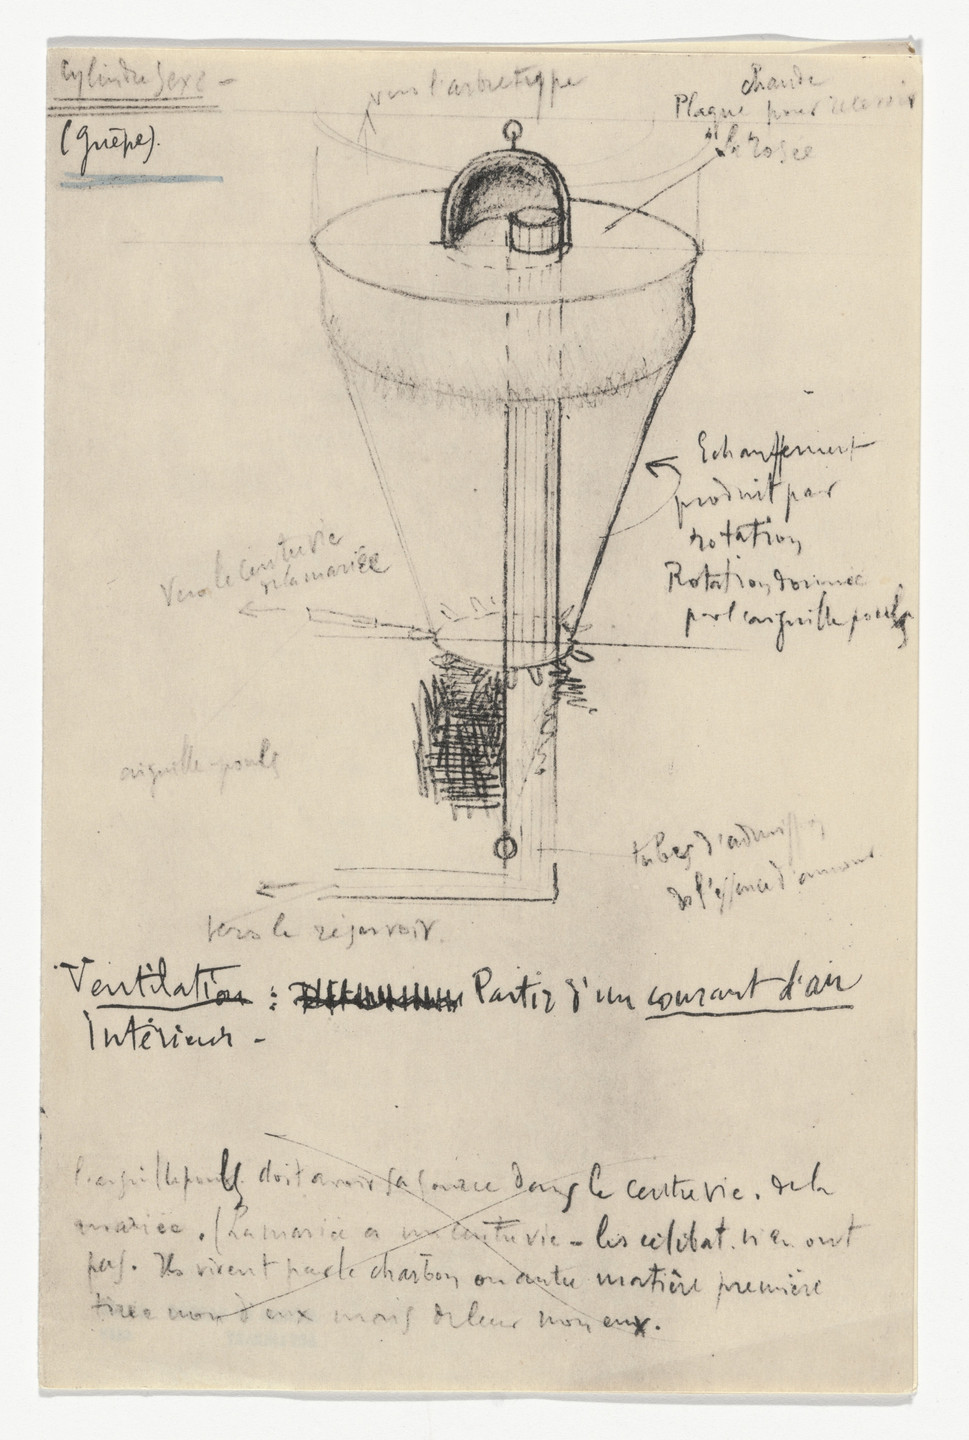 Cylindre sexe -
(Guêpe).
vers l'arbre type
chaude
Plaque pour recevoir
la rosée
Echauffement
produit par
rotation
Rotation donnée
par l'aiguille pouls
Vers le centre vie
de la mariée
aiguille-pouls
tubes d'admission
de l'essence d'amour
vers le réservoir.
Ventilation : Partir d'un courant d'air
Intérieur -
l'aiguille pouls doit avoir sa source dans le centre vie. de la
mariée. (La mariée a un centre vie - les célibat. n'en ont
pas. Ils vivent par le charbon ou autre matière première
tirée non d'eux mais de leur non eux.